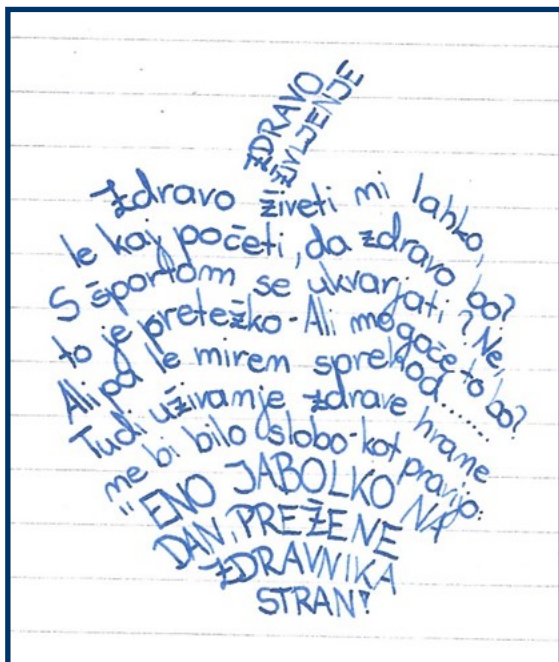 ZDRAVO
ŽIVLJENJE
Zdravo živeti mi lahko,
le kaj početi, da zdravo bo?
S športom se ukvarjati? Ne,
to je pretežko - Ali mogoče to bo?
Ali pa le miren sprehod........
Tudi uživanje zdrave hrane
ne bi bilo slobo - kot pravijo:
"ENO JABOLKO NA
DAN, PREŽENE
ZDRAVNIKA
STRAN!